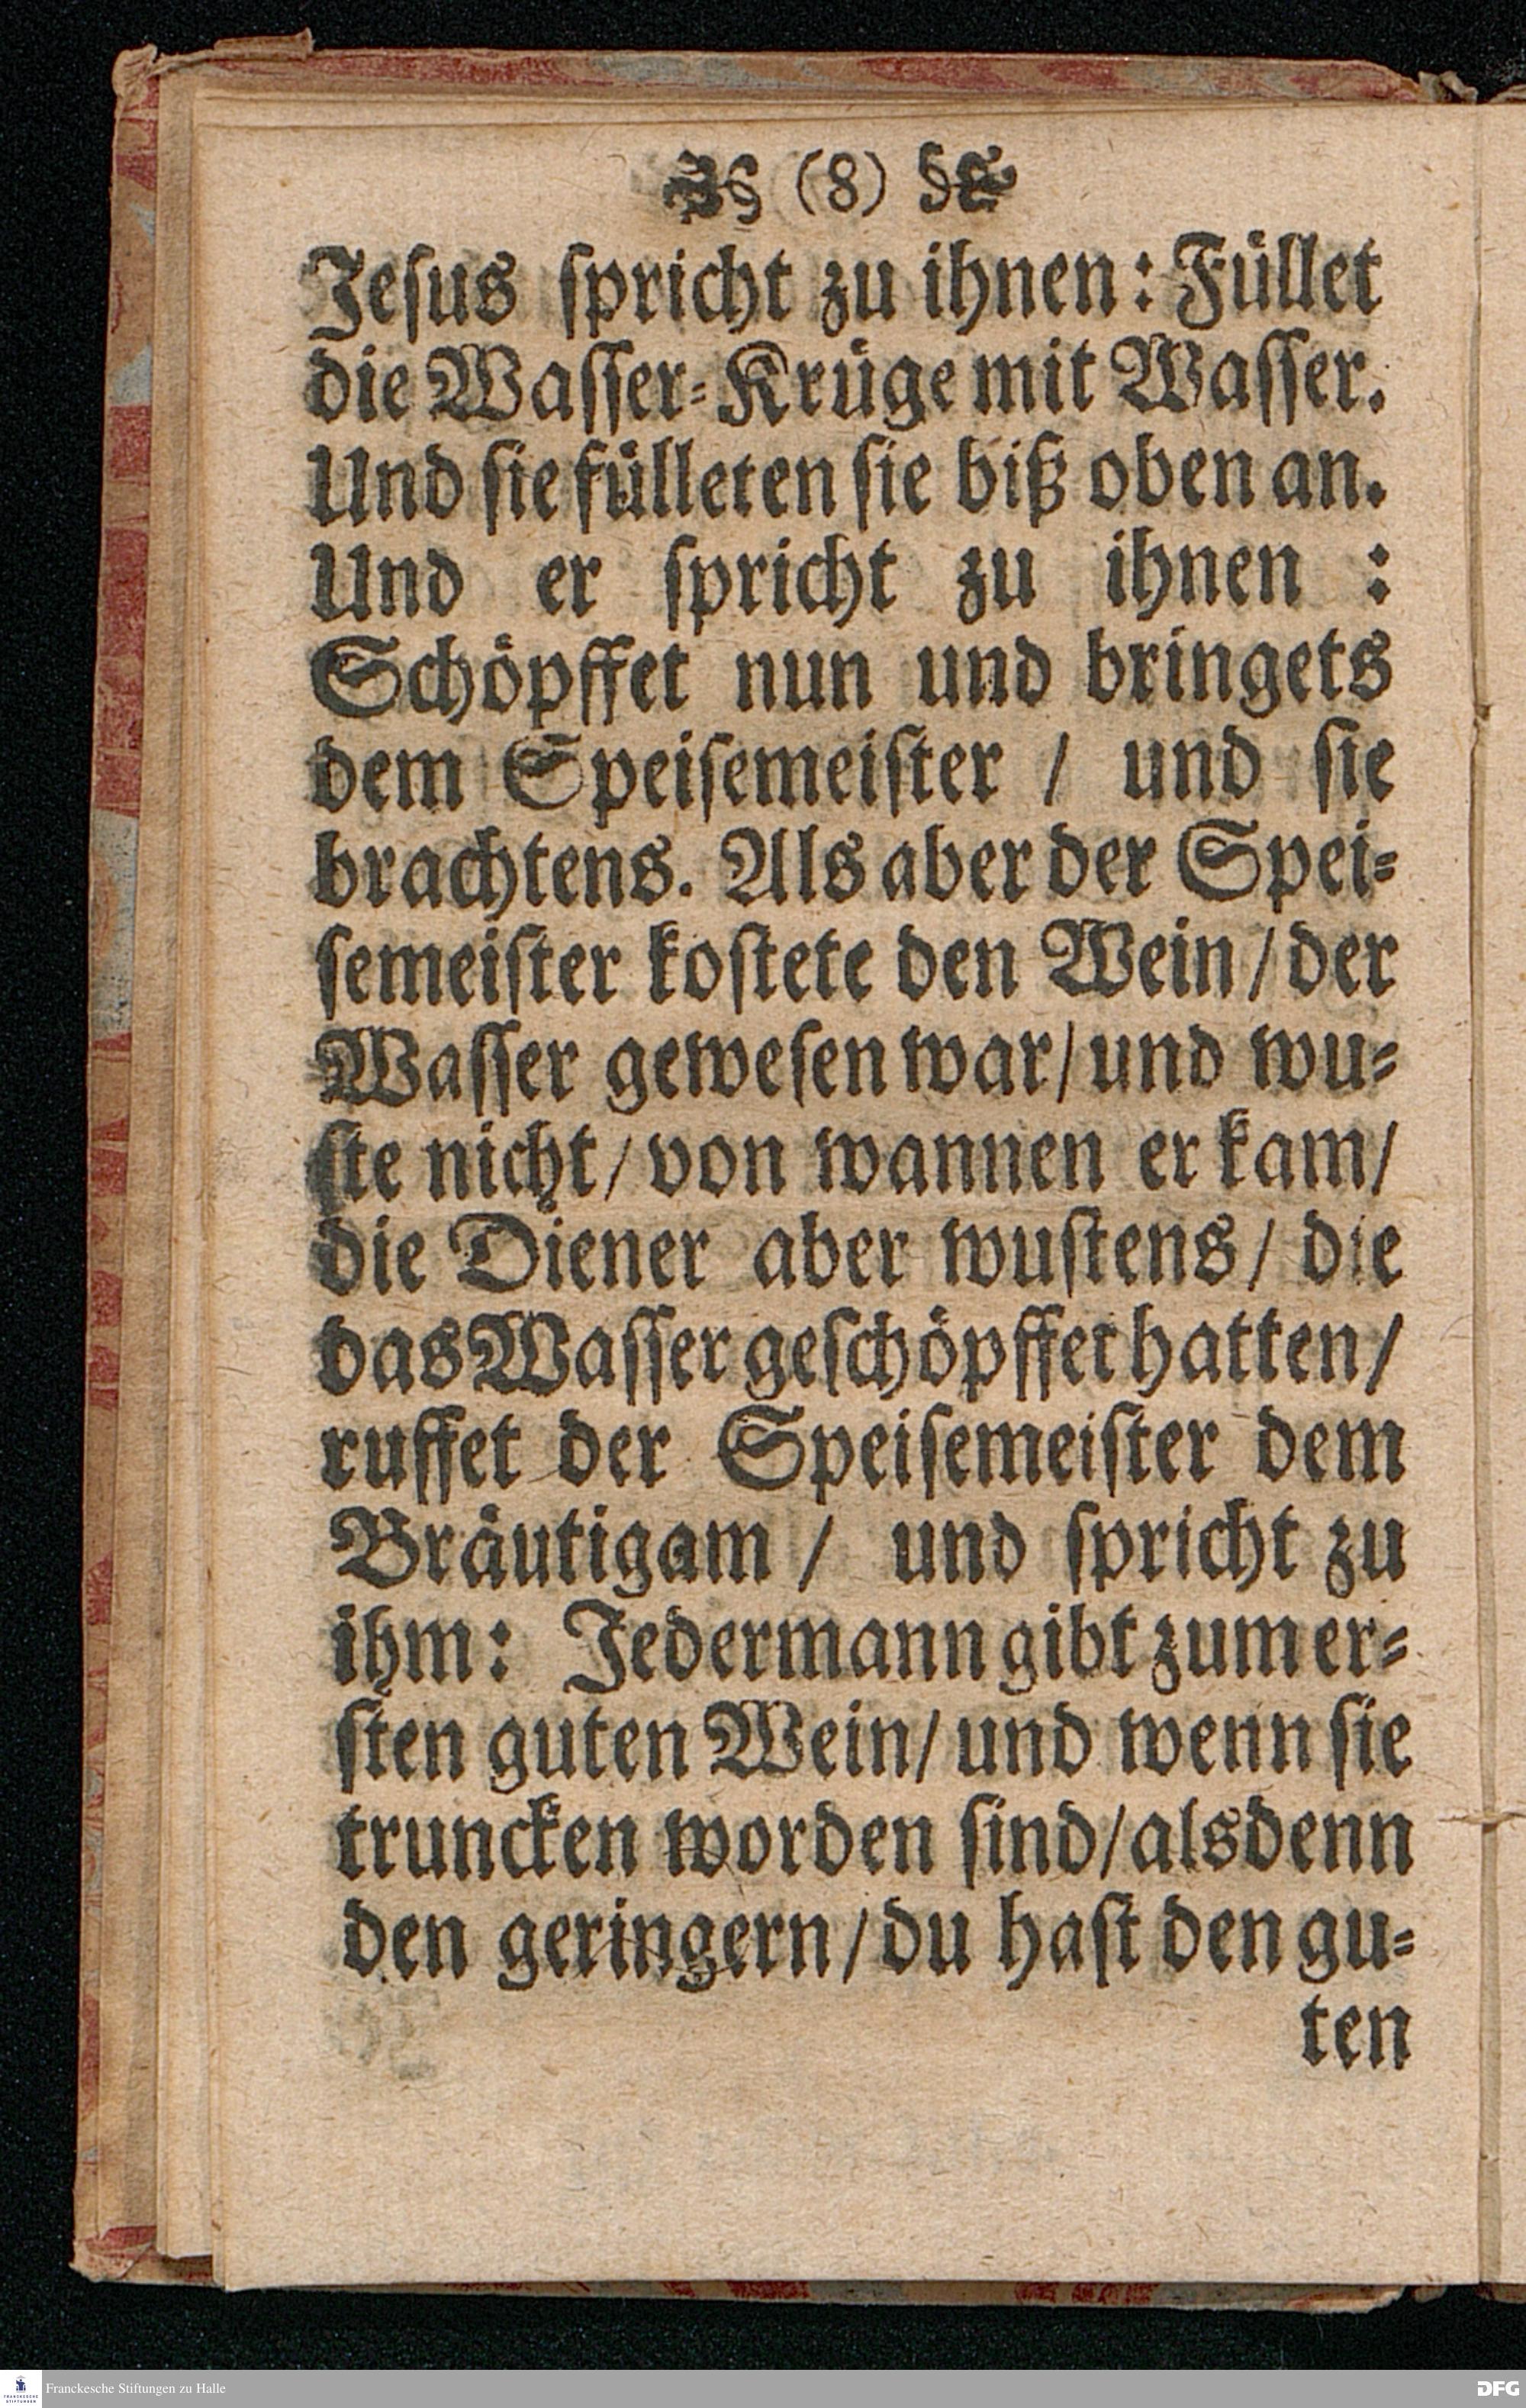 (8)
Jesus spricht zu ihnen: Füllet
die Wasser-Krüge mit Wasser.
Und sie fülleten sie biß oben an.
Und er spricht zu ihnen :
Schöpffet nun und bringets
dem Speisemeister / und sie
brachtens. Als aber der Spei-
semeister kostete den Wein / der
Wasser gewesen war / und wu-
ste nicht / von wannen er kam /
die Diener aber wustens / die
das Wasser geschöpffet hatten /
ruffet der Speisemeister dem
Bräutigam / und spricht zu
ihm: Jedermann gibt zum er-
sten guten Wein / und wenn sie
truncken worden sind / alsdenn
den geringern / du hast den gu-
ten
FRANCKESCHE STIFTUNGEN
Franckesche Stiftungen zu Halle
DFG